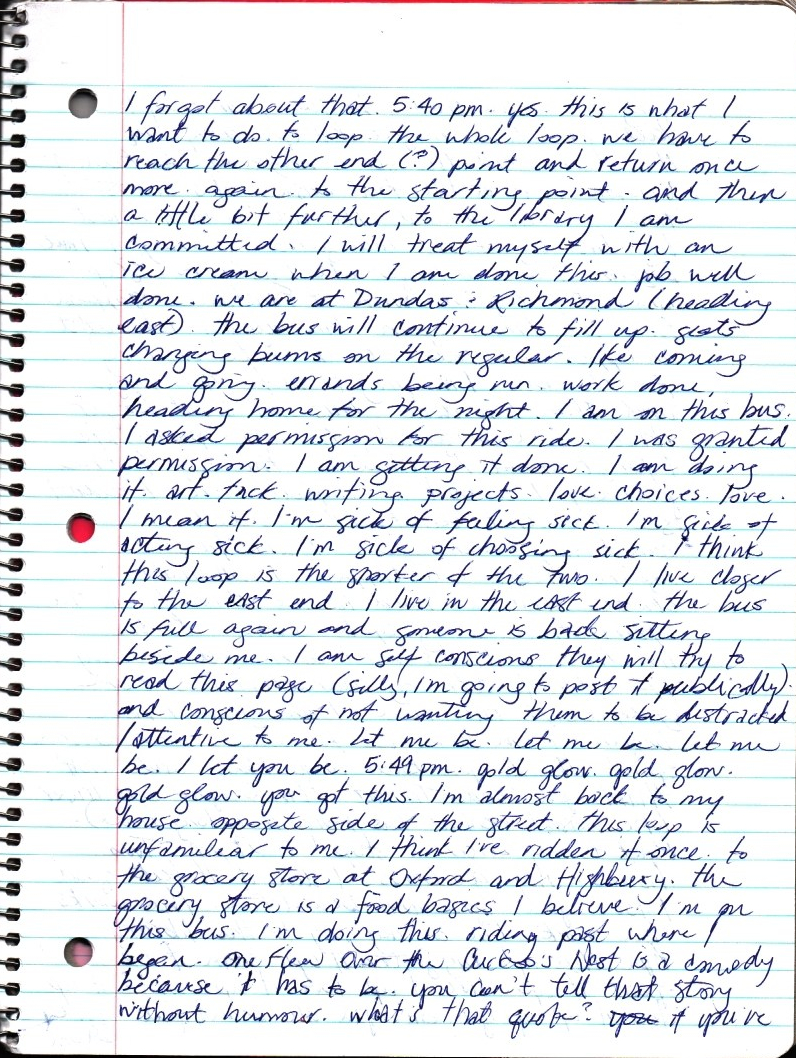 I forgot about that. 5:40 pm. yes. this is what I
want to do. to loop. the whole loop. we have to
reach the other end (?) point and return once
more. again. to the starting point. and then
a little bit further, to the library I am
committed. I will treat myself with an
ice cream when I am done this. job well
done. we are at Dundas & Richmond (heading
east). the bus will continue to fill up. seats
changing bums on the regular. like coming
and going. errands being run. work done,
heading home for the night. I am on this bus.
I asked permission for this ride. I was granted
permission. I am getting it done. I am doing
it. art. fuck. writing projects. love. choices. love.
I mean it. I'm sick of feeling sick. I'm sick of
acting sick. I'm sick of choosing sick. I think
this loop is the shorter of the two. I live closer
to the east end. I live in the east end. the bus
is full again and someone is back sitting
beside me. I am self conscious they will try to
read this page (silly, I'm going to post it publically).
and conscious of not wanting them to be distracted
/attentive to me. let me be. let me be. let me
be. I let you be. 5:49 pm. gold glow. gold glow.
gold glow. you got this. I'm almost back to my
house. opposite side of the street. this loop is
unfamiliar to me. I think I've ridden it once. to
the grocery store at Oxford and Highbury. the
grocery store is a food basics I believe. I'm on
this bus. I'm doing this. riding past where I
began. One Flew Over the Cuckoo's Nest is a comedy
because it has to be. you can't tell that story
without humour. what's that quote? you if you've